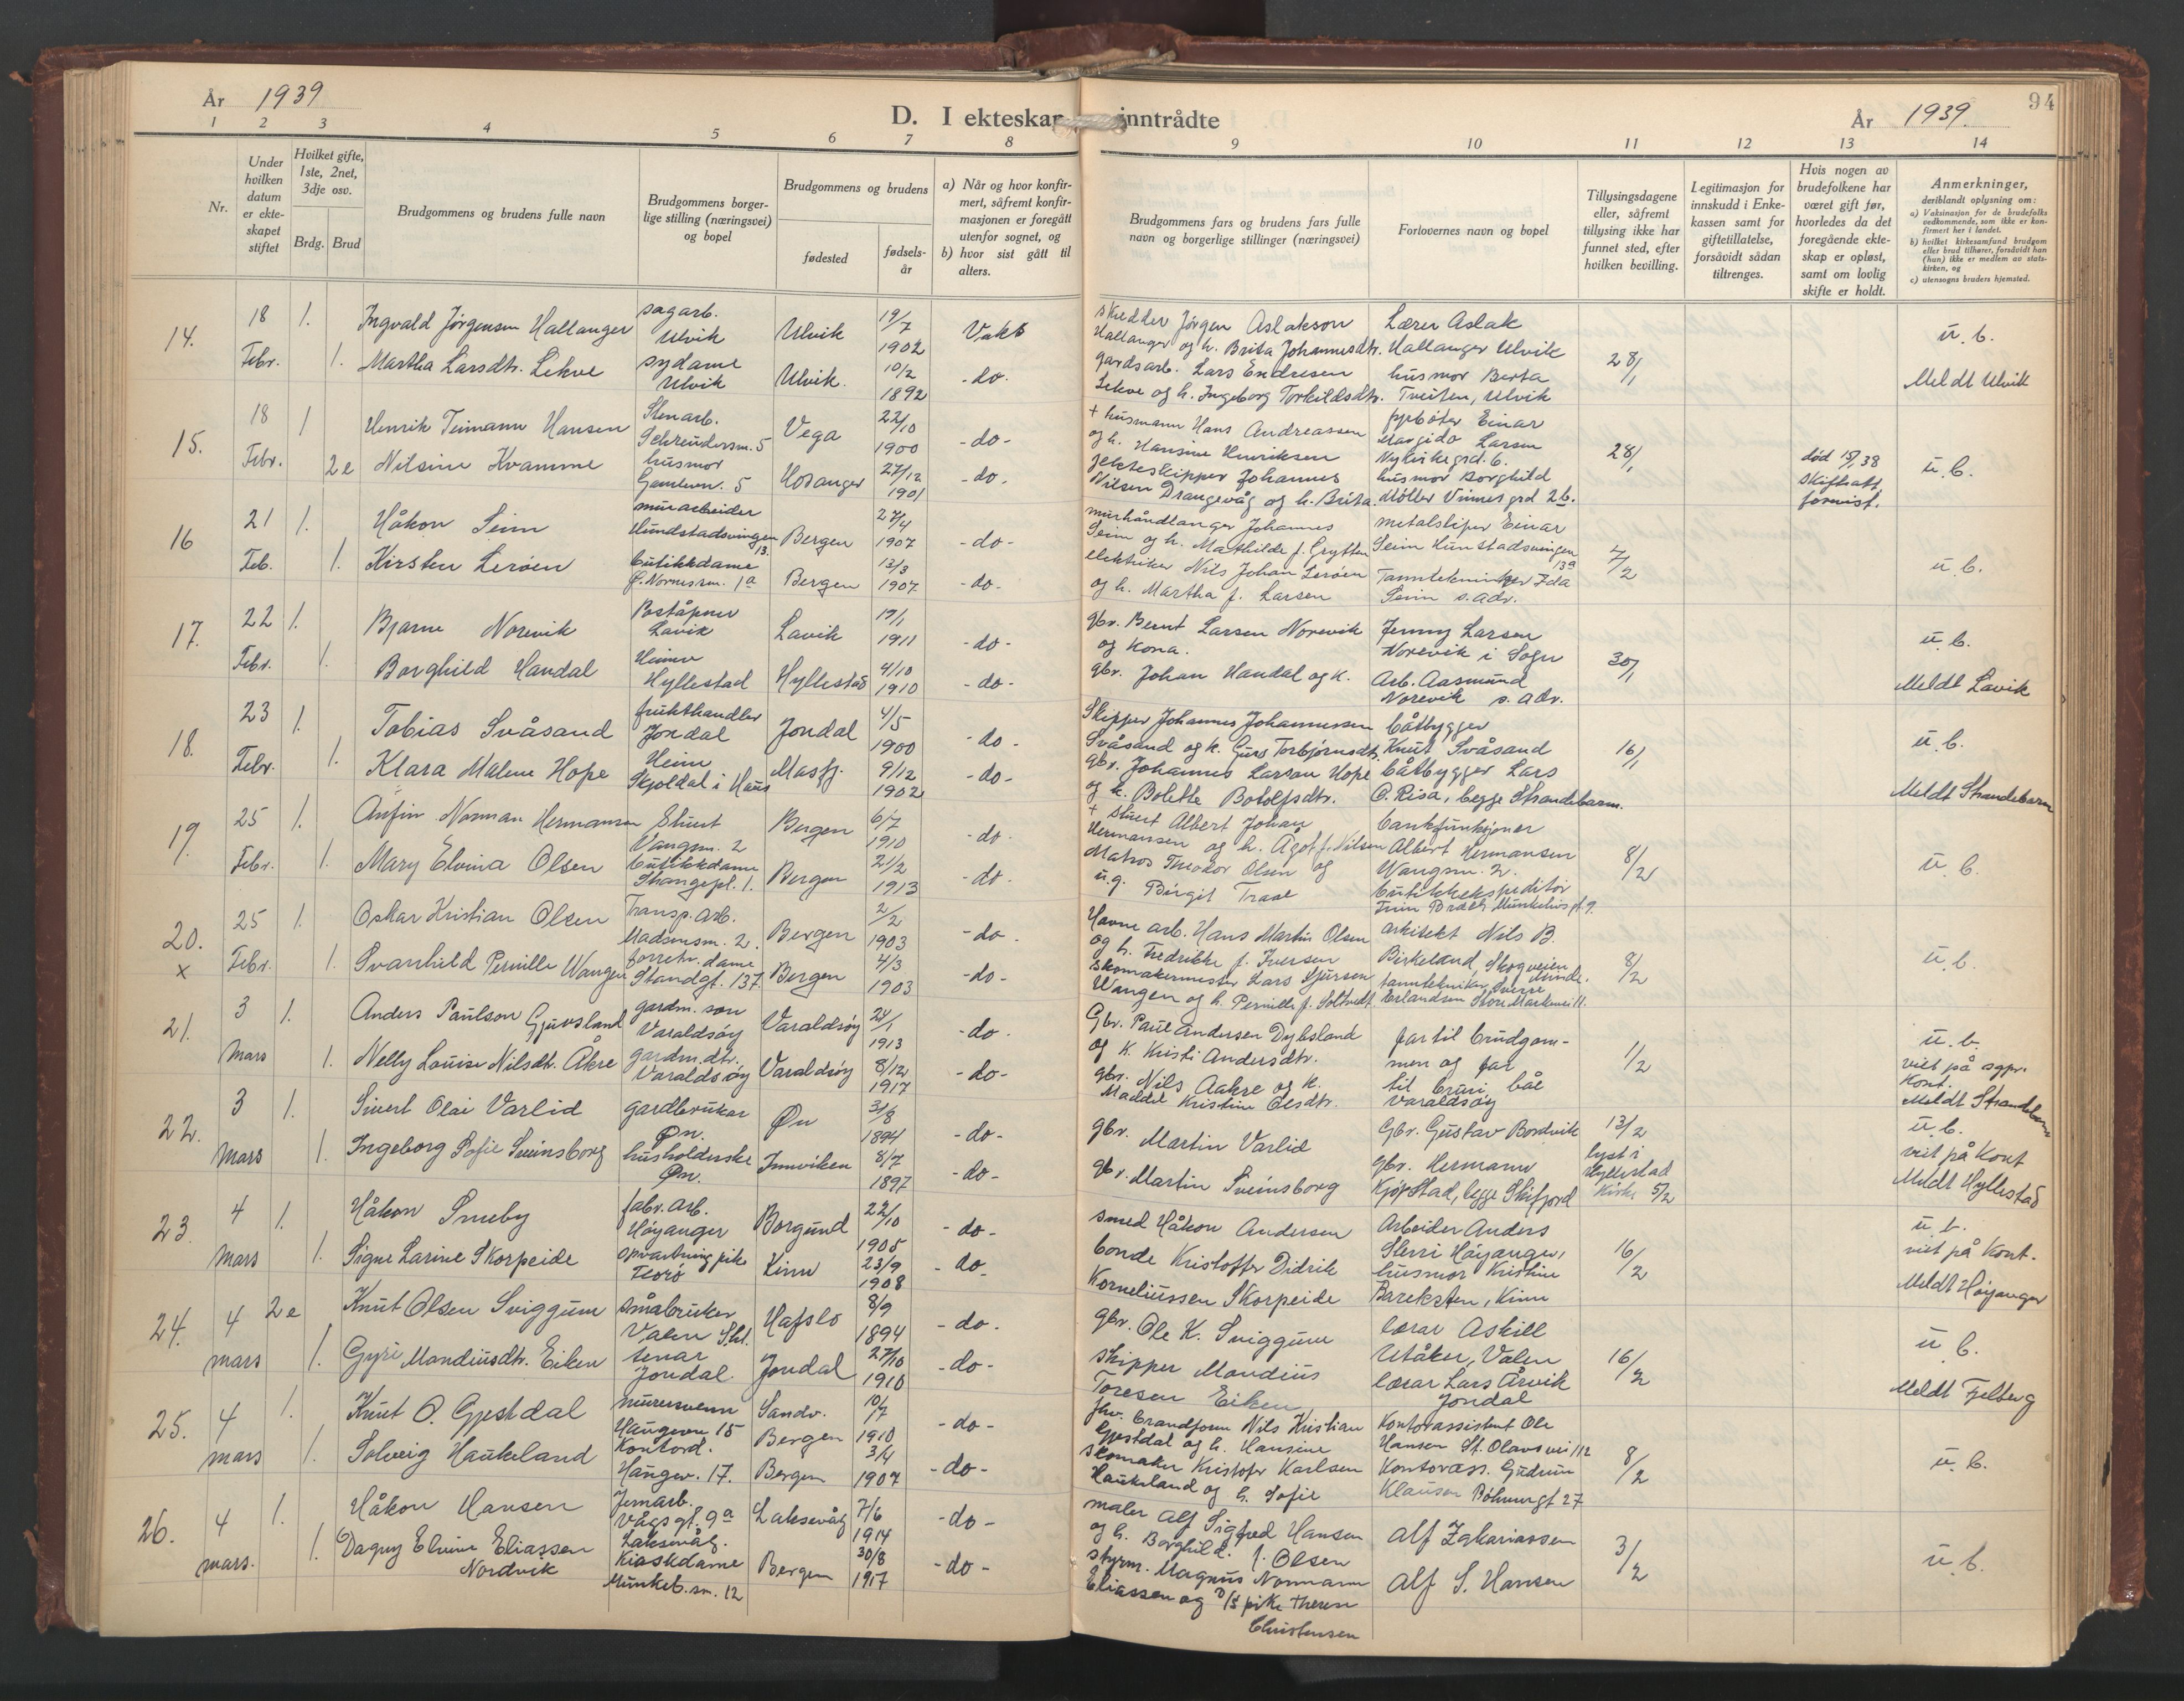 År 1939
D. I ekteskap inntrådte
År 1939.
94
1 2 3 4 5 6 7 8 9 10 11 12 13 14
Nr.
Under hvilken datum er ekteskapet stiftet
Hvilket gifte, 1ste, 2net, 3dje osv.
Brdg. Brud
Brudgommens og brudens fulle navn
Brudgommens borgerlige stilling (næringsvei) og bopel
Brudgommens og brudens
fødested
fødselsår
a) Når og hvor konfirmert, såfremt konfirmasjonen er foregått utenfor sognet, og
b) hvor sist gått til alters.
Brudgommens fars og brudens fars fulle navn og borgerlige stillinger (næringsvei)
Forlovernes navn og bopel
Tillysingsdagene eller, såfremt tillysing ikke har funnet sted, efter hvilken bevilling.
Legitimasjon for innskudd i Enkekassen samt for giftetillatelse, forsåvidt sådan tiltrenges.
Hvis nogen av brudefolkene har været gift før, hvorledes da det foregående ekteskap er opløst, samt om lovlig skifte er holdt.
Anmerkninger, deriblandt oplysning om:
a) Vaksinasjon for de brudefolks vedkommende, som ikke er konfirmert her i landet.
b) hvilket kirkesamfund brudgom eller brud tilhører, forsåvidt han (hun) ikke er medlem av statskirken, og
c) utensogns bruders hjemsted.
14. 18 Febr. 1. Ingvald Jørgensen Hallanger sagarb. Ulvik Ulvik 19/7 1902
Jørgen Aslakson Hallanger og h. Brita Johannesdtr. Lærer Aslak Hallanger Ulvik 28/1 u. b.
1. Martha Larsdtr. Lekve sydame Ulvik Ulvik. 10/2 1892 - do -
gardsarb. Lars Endresen Lekve og h. Ingeborg Torkildsdtr. husmor Berta Tveiten, Ulvik Meldt Ulvik
15. 18 Febr. 1 Henrik Teimann Hansen Stenarb. 5 Vega 22/10 1900 - do -
+ husmann Hans Andreassen og h. Hansine Henriksen fyrbøter Einar Larsen Nykirkegrd. 6. 28/1 u. b.
2e Nilsine Kvamme husmor 5 Hosanger 27/12 1901 - do.
jekteskipper Johannes Nilsen Drangevåg og h. Brita. husmor Borghild Møller Vinnes grd 2b. død 15/1 38 Skifteatt. forevist.
16 21 Feb. 1. Håkon Seim murarbeider 13. Bergen 27/4 1907 - do -
murhåndlanger Johannes Seim og h. Mathilde f. Grytten metalsliper Einar Seim Hunstadsvingen 13a 7/2 u. b.
1. Kirsten Lerøen butikkdame 1a Bergen 13/3 1907 - do -
elektriker Nils Johan Lerøen og h. Martha f. Larsen Tanntekniker Ida Seim s. adr.
17. 22 Febr. 1. Bjarne Norevik Poståpner Lavik Lavik 19/1 1911 - do -
gbr. Bernt Larsen Norevik og Kona. Jenny Larsen Norevik i Sogn 30/1 u. b.
1. Borghild Handal Heime Hyllestad Hyllestad 4/10 1910 - do -
gbr. Johan Handal og k. Arb. Aasmund Norevik s. adr. Meldt Lavik
18. 23 Febr. 1. Tobias Svåsand frukthandler Jondal Jondal 4/5 1900 - do -
Skipper Johannes Johannessen Svåsand og k. Guro Torbjørnsdtr. båtbygger Knut Svåsand 16/1 u. b.
1. Klara Malene Hope Heim Skjoldal i Haus Masfj. 9/12 1902 - do -
gbr. Johannes Larsen Hope og k. Bolette Botolfsdtr. båtbygger Lars O. Risa, begge Strandebarm. Meldt Strandebarm
19. 25 Febr. 1. Anfin Norman Hermansen Stuert Vangsm. 2 Bergen 6/7 1910 - do -
+ stuert Albert Johan Hermansen og h. Ågot f. Nilsen bankfunksjoner Albert Hermansen Wangsm. 2. 8/2 u. b.
1. Mary Elvina Olsen butikkdame Stangepl. 1. Bergen 21/2 1913 - do -
Matros Theodor Olsen og u.g. Birgit Traae butikkekspeditør
20. x 25 Febr. 1. Oskar Kristian Olsen Transp. arb. 2. Bergen 2/2 1903 - do -
Havnearb. Hans Martin Olsen og h. Fredrikke f. Iversen arkitekt Nils B. Birkeland, Skogveien Minde. 8/2 u. b.
1. Svanhild Pernille Wangen forretn. dame Standgt. 137. Bergen 4/3 1903 - do -
skomakermester Lars Sjursen Wangen og h. Pernille f. Soltvedt tanntekniker Sverre Erlandsen Store Markevei 11.
21. 3 Mars 1. Anders Paulson Gjuvsland gardm. son Varaldsøy Varaldsøy 24/1 1913 - do -
Gbr. Paul Andersen og K. Kristi Andersdtr. far til brudgommen og far til bruri båe Varaldsøy 1/2 u. b. viet på sgpr. Kont.
1. Nelly Louise Nilsdtr. Åkre gardm. dtr. Varaldsøy Varaldsøy 8/12 1917 - do -
gbr. Nils Aakre og k. Kristine Olsdtr. Meldt Strandebarm
22. 3 Mars 1. Sivert Olai Varlid gardbrukar Øn. Øn 31/8 1894 - do -
gbr. Martin Varlid Gbr. Gustav Bordvik 13/2 lyst i Hyllestad Kirke 5/2 u. b. viet på Kont
1. Ingeborg Sofie Sveinsborg husholderske Øn. Innviken 8/7 1897 - do -
gbr. Martin Sveinsborg gbr. Hermann Kjørstad, begge Skifjord Meldt Hyllestad
23. 4 Mars 1. Håkon Smeby fabr. arb. Høyanger Borgund 22/10 1905 - do -
smed Håkon Andersen Arbeider Anders Høyanger, 16/2 u. b. viet på Kont.
1. Signe Larine Skorpeide opvartningspike Florø Kinn 23/9 1908 - do -
bonde Kristoffer Didrik Korneliussen Skorpeide husmor Kristine Bareksten, Kinn Meldt Høyanger
24. 4 mars 2e Knut Olsen Sviggum småbruker Valen Hafslo 8/9 1894 - do -
gbr. Ole K. Sviggum lærar Askill Utåker, Valen 16/2 u. b.
1. Gyri Mandiusdtr. Eiken tenar Jondal Jondal 27/10 1910 - do -
skipper Mandius Toresen Eiken lærar Lars Årvik Jondal Meldt Fjelberg
25. 4 mars 1. Knut O. Gjestdal murersvenn Haugevn 15 Sandv. Bergen 10/7 1910 - do -
fhv. brandform Nils Kristian Gjestdal og h. Hansine Kontorassistent Ole Hansen St. Olavs vei 112 8/2 u. b.
1. Solveig Haukeland Kontord. Haugev. 17. Bergen 3/4 1907 - do -
skomaker Kristofer Karlsen Haukeland og h. Sofie Kontorass. Gudrun Klausen Bøhmergt 27
26. 4 mars. 1. Håkon Hansen Jernarb. Vågsgt. 9a Laksevåg. Laksevåg 7/6 1914 - do -
maler Alf Sigfred Hansen og h. Borghild f. Olsen Alf Zakariassen 3/2 u. b.
1. Dagny Elvine Eliassen Nordvik Kioskdame Munkeb. sm. 12 Bergen 30/8 1917 - do -
styrm. Magnus Normann Eliassen og pike Theren Christensen Alf S. Hansen